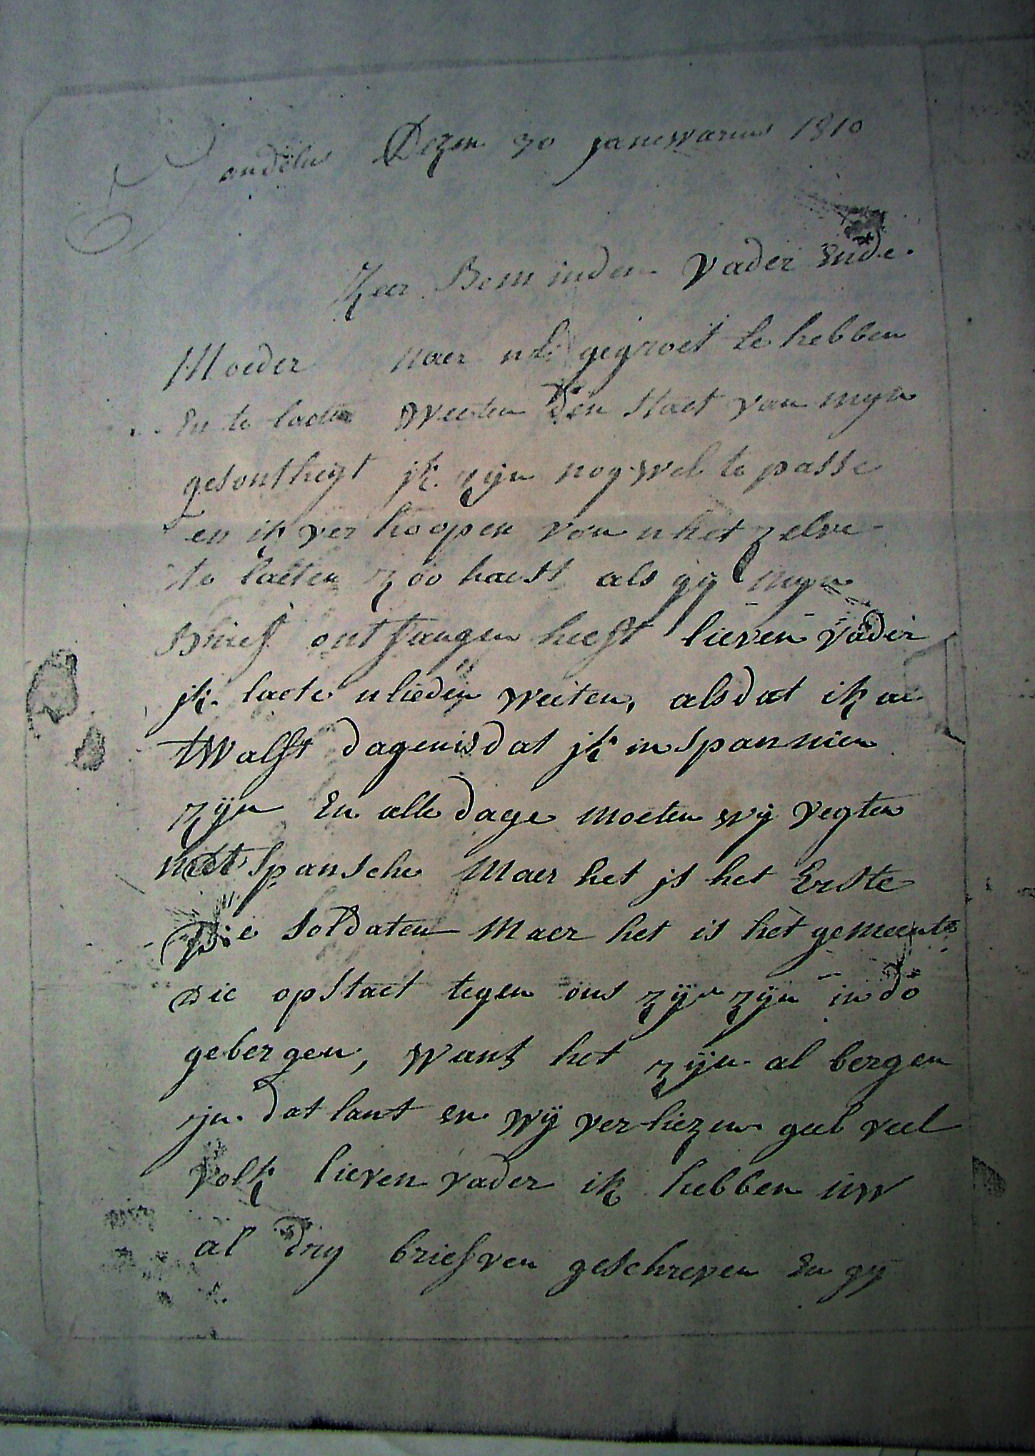 Dezen 30 janewarius 1810
Zeer Beminden vader Ende
Moeder naer uli gegroet te hebben
En te laeten Weeten Den staet van myn
gesontheyt jk zijn nog wel te passe
en ik ver hoopen van u het zelve
te laeten zoo haest als gÿ myn
Brief ontfangen heeft lieven vader
jk laete ulieden weeten, als dat ik al
tWalft dagen is dat jk in spannien
zijn En alle dage moeten wÿ vegten
met spansche Maer het js het Erste
Die soldaten Maer het is het gemeente
Die opstaet tegen ons zÿn zÿn in do
gebergen, want het zijn al bergen
jn dat lant en wÿ verliezen geel veel
volk lieven vader ik hebben uw
al dry briefven geschreven En gÿ